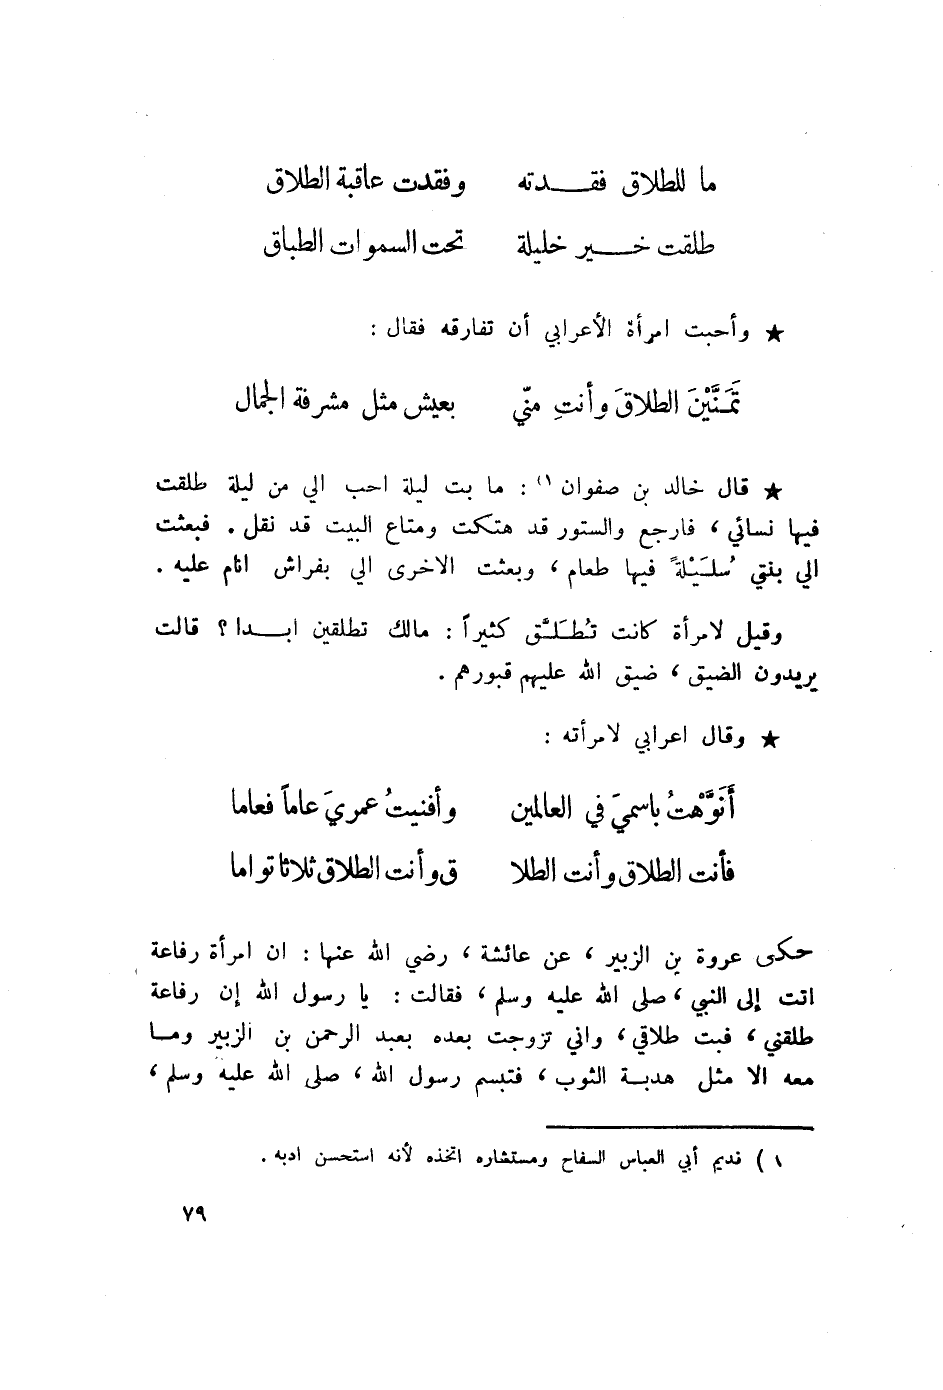 ما للطلاق فقـــدته وفقدت عاقبة الطلاق
طلقت خـــير خليلة تحت السموات الطباق
★ وأحبت امرأة الأعرابي أن تفارقه فقال :
تَمَنَّيْنَ الطلاقَ وأنتِ منّي بعيش مثل مشرفة الجمال
★ قال خالد بن صفوان (١ : ما بت ليلة احب الي من ليلة طلقت
فيها نسائي ، فارجع والستور قد هتكت ومتاع البيت قد نقل . فبعثت
الي بنتي سُلَيْلَةً فيها طعام ، وبعثت الاخرى الي بفراش انام عليه .
وقيل لامرأة كانت تُطَلَّق كثيراً : مالك تطلقين ابـــدا ؟ قالت
يريدون الضيق ، ضيق الله عليهم قبورهم .
★ وقال اعرابي لامرأته :
أَنَوَّهْتُ باسميَ في العالمين وأفنيتُ عمريَ عاماً فعاما
فأنت الطلاق وأنت الطلا ق وأنت الطلاق ثلاثا تواما
حكى عروة بن الزبير ، عن عائشة ، رضي الله عنها : ان امرأة رفاعة
اتت إلى النبي ، صلى الله عليه وسلم ، فقالت : يا رسول الله إن رفاعة
طلقني ، فبت طلاقي ، واني تزوجت بعده بعبد الرحمن بن الزبير ومـا
معه الا مثل هدبـة الثوب ، فتبسم رسول الله ، صلى الله عليه وسلم ،
١ ) نديم أبي العباس السفاح ومستشاره اتخذه لأنه استحسن ادبه .
٧٩